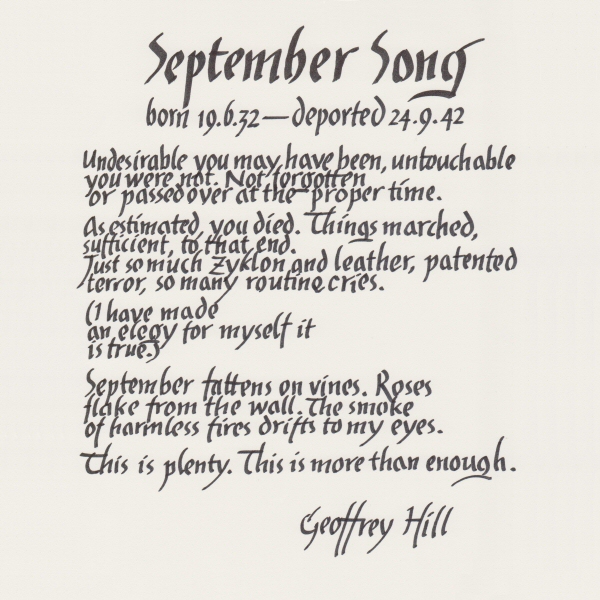 September Song
born 19.6.32—deported 24.9.42
Undesirable you may have been, untouchable
you were not. Not forgotten
or passed over at the proper time.
As estimated, you died. Things marched,
sufficient, to that end.
Just so much Zyklon and leather, patented
terror, so many routine cries.
(I have made
an elegy for myself it
is true.)
September fattens on vines. Roses
flake from the wall. The smoke
of harmless fires drifts to my eyes.
This is plenty. This is more than enough.
Geoffrey Hill